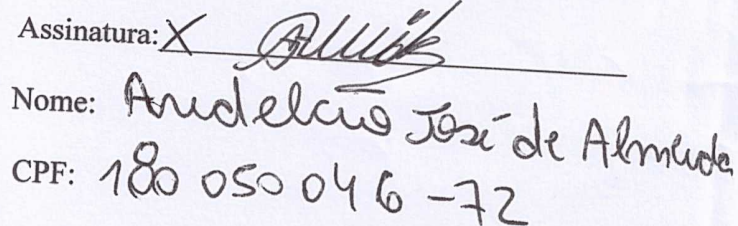 Assinatura: X
Nome: Andelcio José de Almeida
CPF: 180 050 046-72